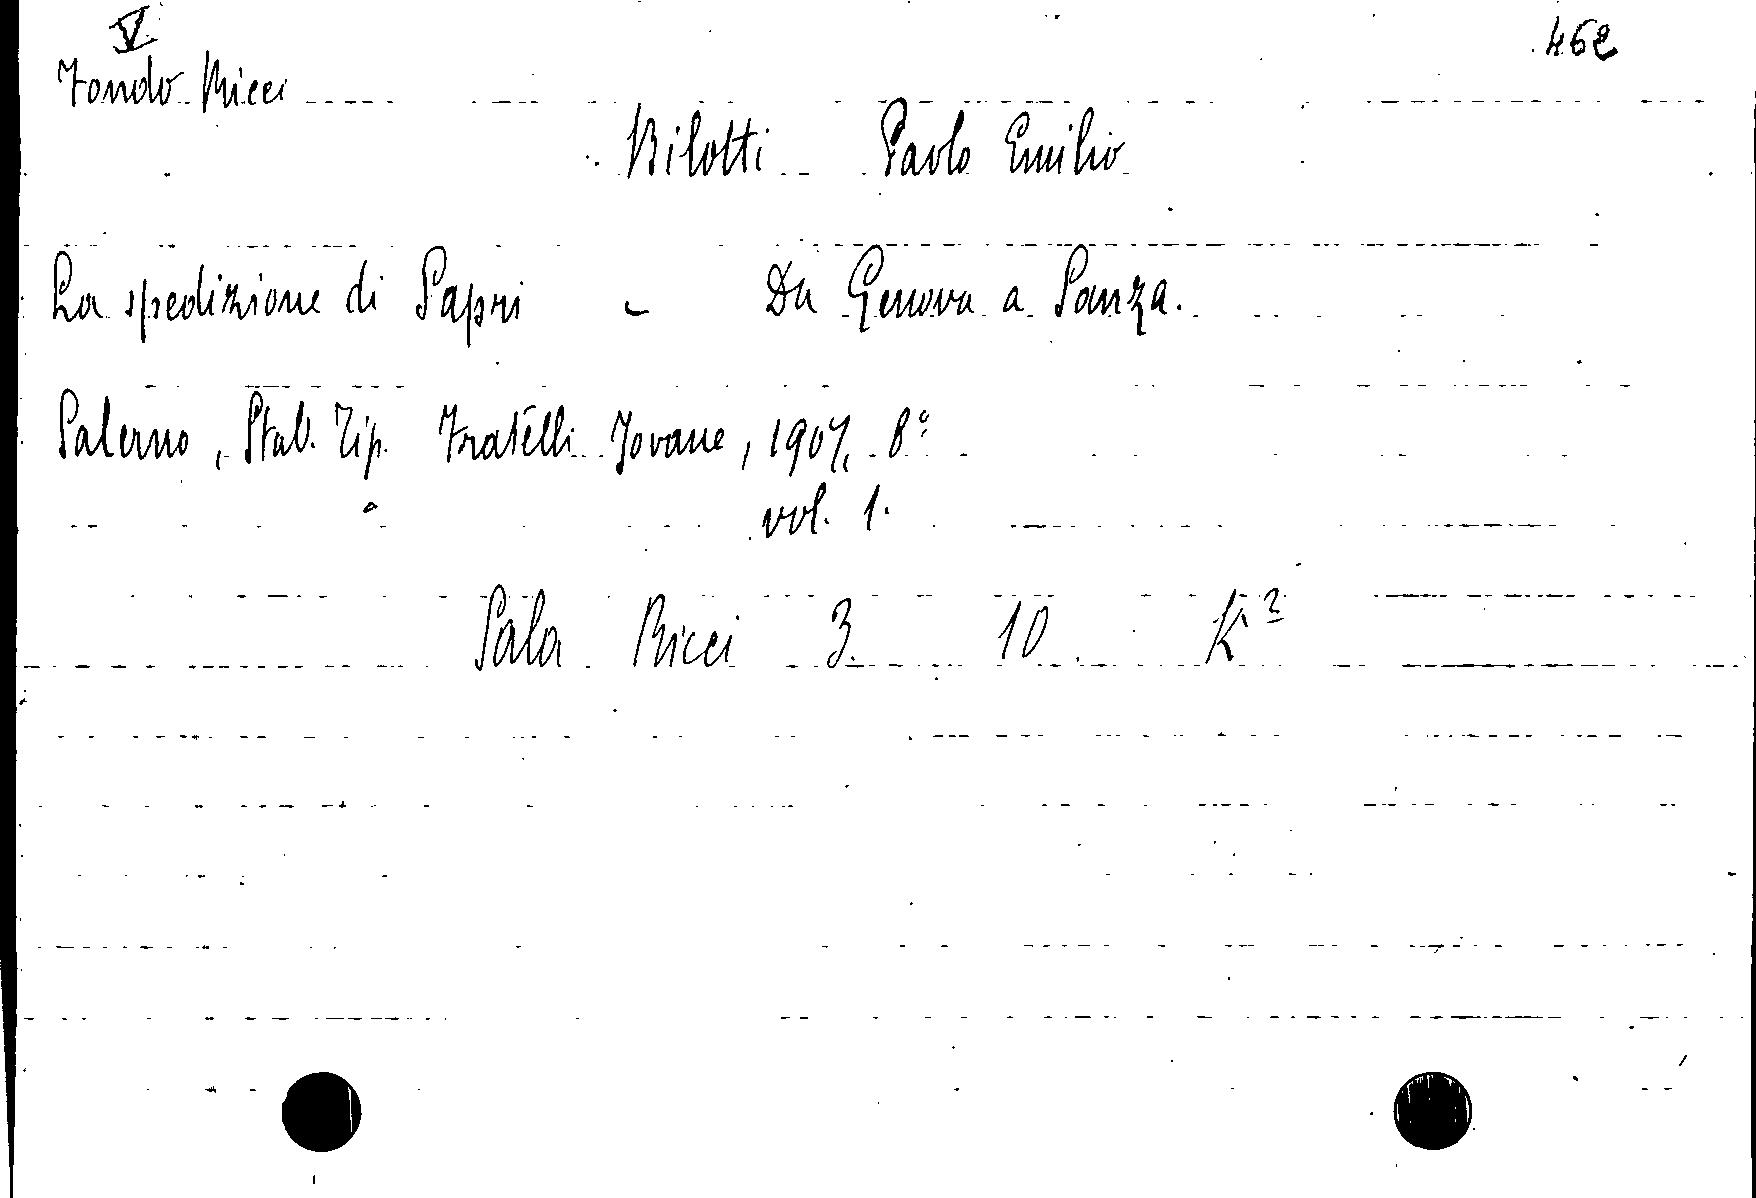 V
462
Fondo Ricci
Bilotti Paolo Emilio
La spedizione di Sapri - Da Genova a Sanza.
Salerno, Stab. Tip. Fratelli Jovane, 1907, 8°
vol. 1.
Sala Ricci 3 10 K²